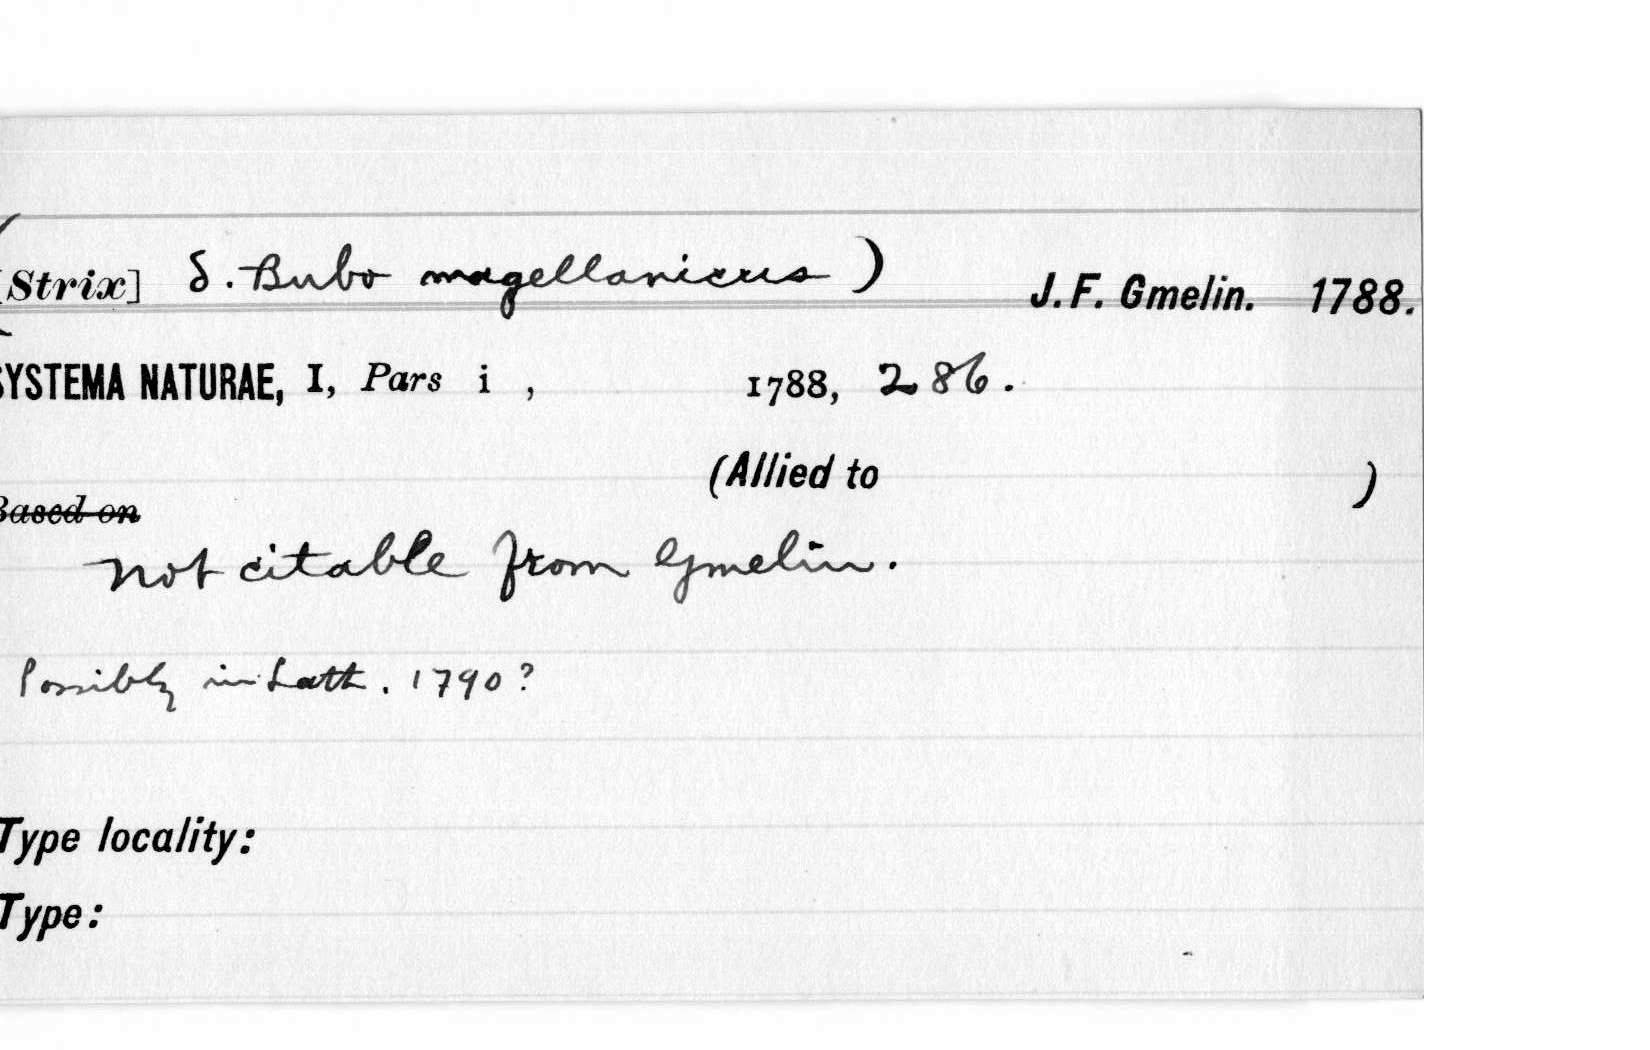 ([Strix] δ. Bubo magellanicus) J. F. Gmelin. 1788.
SYSTEMA NATURAE, I, Pars i , 1788, 286.
(Allied to )
Based on
not citable from Gmelin.
Possibly in Lath. 1790?
Type locality:
Type: